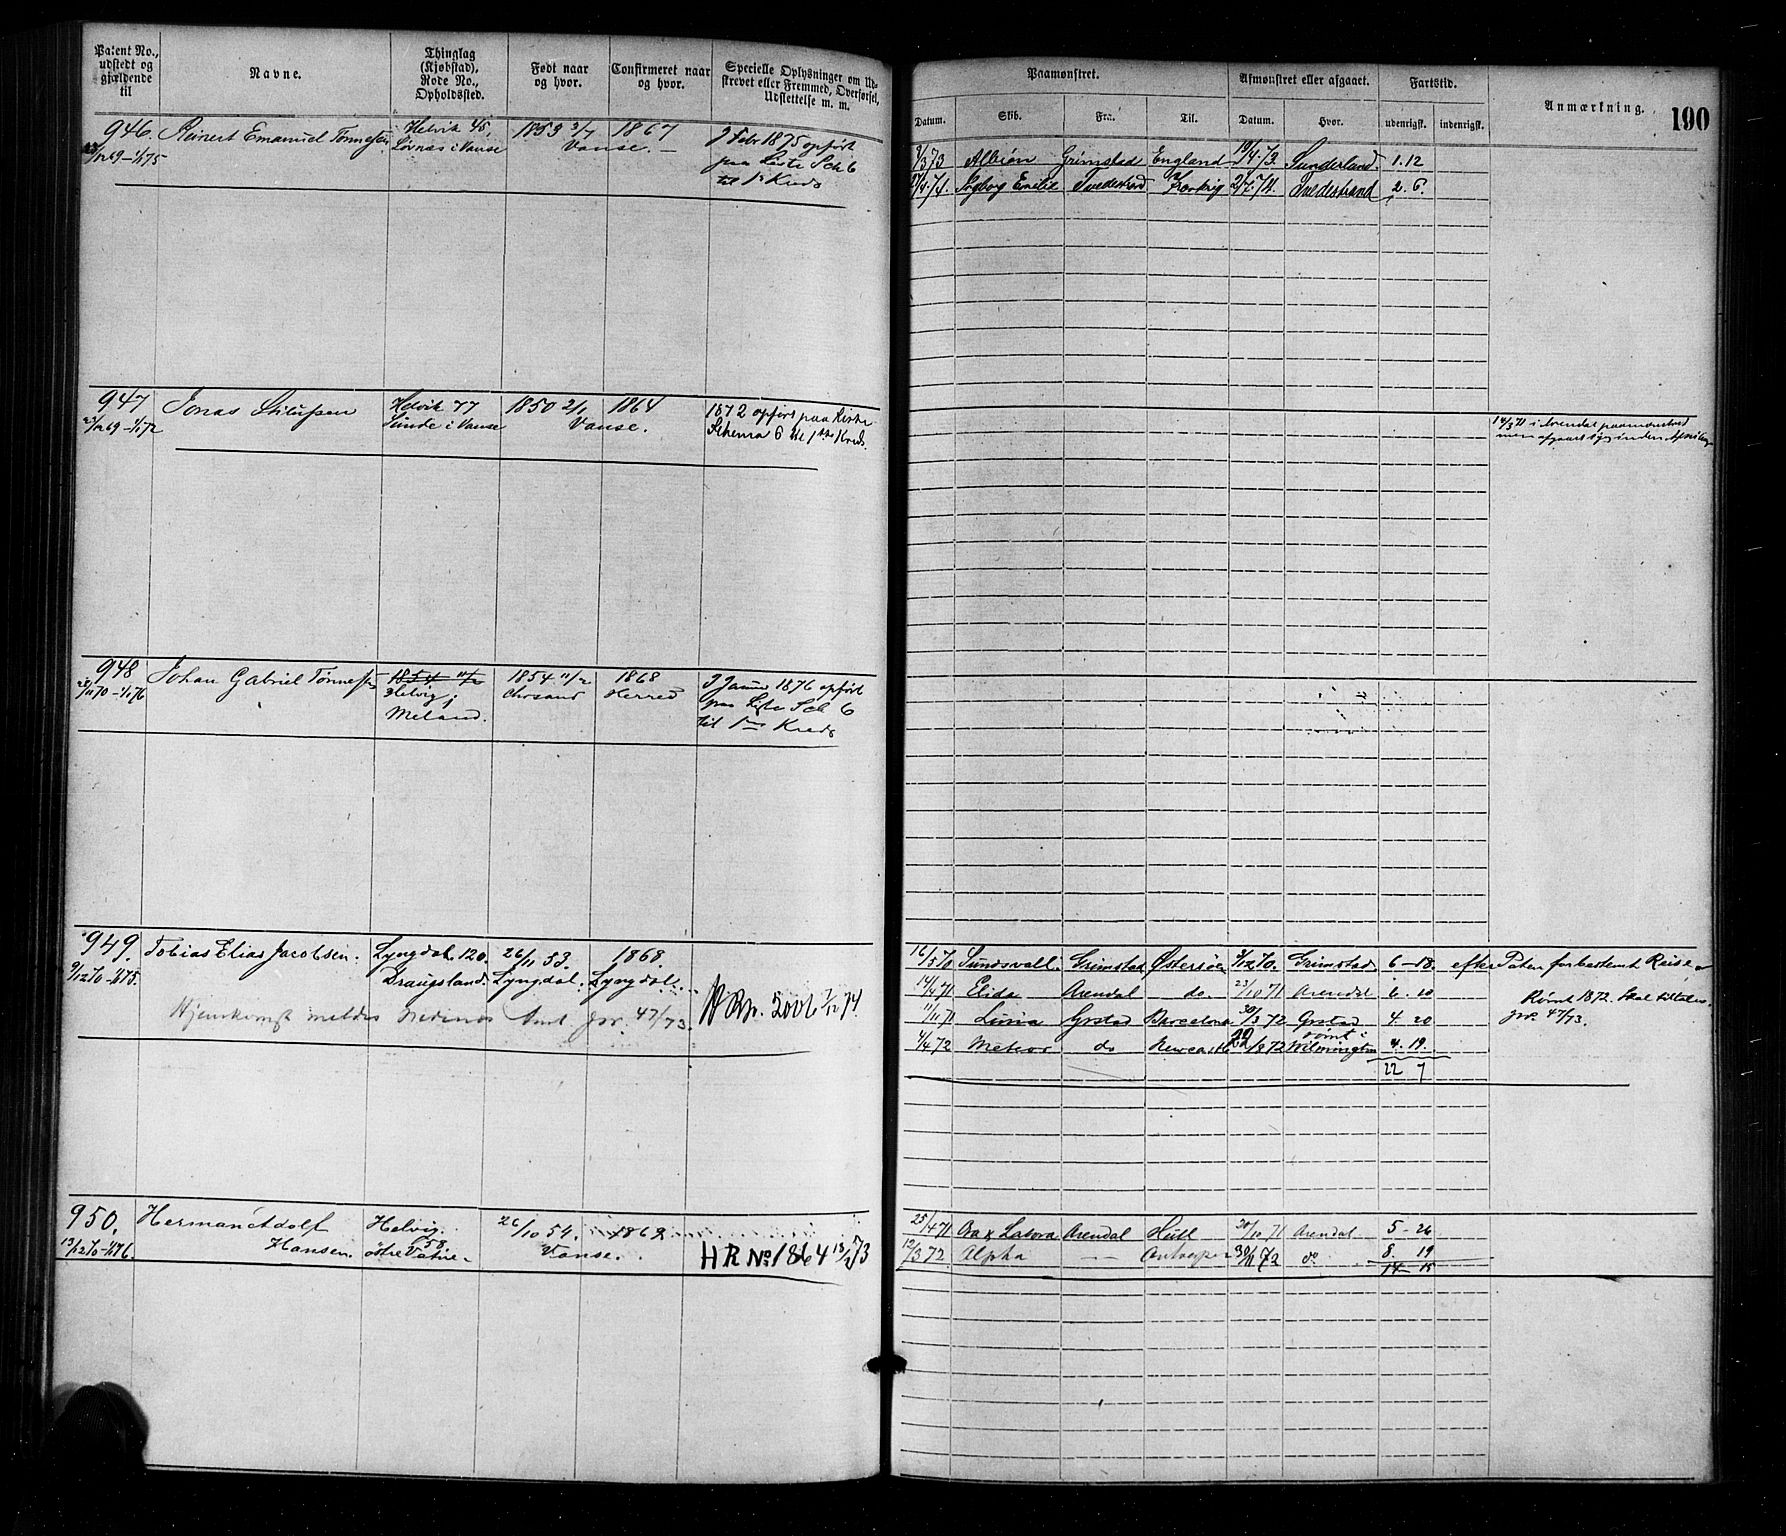 Patent No., udstedt og gjældende til
Navne.
Thinglag (Kjøbstad), Rode No., Opholdssted.
Født naar og hvor.
Confirmeret naar og hvor.
Specielle Oplysninger om Udskrevet eller Fremmed, Overførsel, Udslettelse m. m.
Paamønstret.
Afmønstret eller afgaaet.
Fartstid.
Anmærkning.
190
Datum.
Skib.
Fra.
Til.
Datum.
Hvor.
udenrigsk.
indenrigsk.
946. Reinert Emanuel Tønnesen
Helvik 45,
i Vanse
1853 2/7
Vanse.
1867
I Febr 1875 opført
paa Liste Sch 6
til 1ste Kreds
/3 73 Albion Grimstad England 19/4 73. Sunderland. 1. 12
Ingborg Emilie Tvedestrand 2/7. 74. Tvedestrand 2. 6.
947
/12 69 – 1/1 72
Jonas
Helvik 77
Sunde i Vanse
1850 2/1
Vanse.
1864
1872 opført paa Liste
Schema 6 til 1ste Kreds.
14/3 71 i Arendal paamønstret
men afgaaet
948
/11 70 – 1/1 76
Johan Gabriel Tønnesen
1854 11/2
Helvig
Meland.
1854 11/2
Chrsand
1868
Herred
I Januar 1876 opført
paa Liste Sch 6
til 1ste Kreds
949.
9/12 70 – 1/1 75.
Tobias Elias Jacobsen.
Lyngdal. 120.
Draugsland.
26/11 53.
Lyngdal.
1868.
Lyngdal.
Hjemkomst meldes Nedenæs Amt jvr. 47/73.
2006 7/12 74.
16/5 70 Sundsvall. Grimstad Østersøen 3/12 70. Grimstad 6 – 18. efter Paten forbestemt Reise
14/4 71 Elida Arendal do. 23/10 71 Arendal 6. 10
Rømt 1872. Skal tiltales.
jvr. 47/73.
11/11 71 Grstad Barcelona 30/3 72 Grstad 4. 20
rømt i
4/4 72 Meteor do Newcastle 22/8 72 Wilmington 4. 19.
22 7
950.
13/12 70 – 1/1 76.
Herman Adolf
Hansen.
Helvig
58
østre Vatne
26/10 54.
Vanse.
1869
HR No 1864 13/2 73
25/4 71 Ora & Labora Arendal Hull 30/10 71 Arendal 5 – 26
12/3 72 Alpha — Antwerpen 30/11 72 do 8. 19
14 – 15